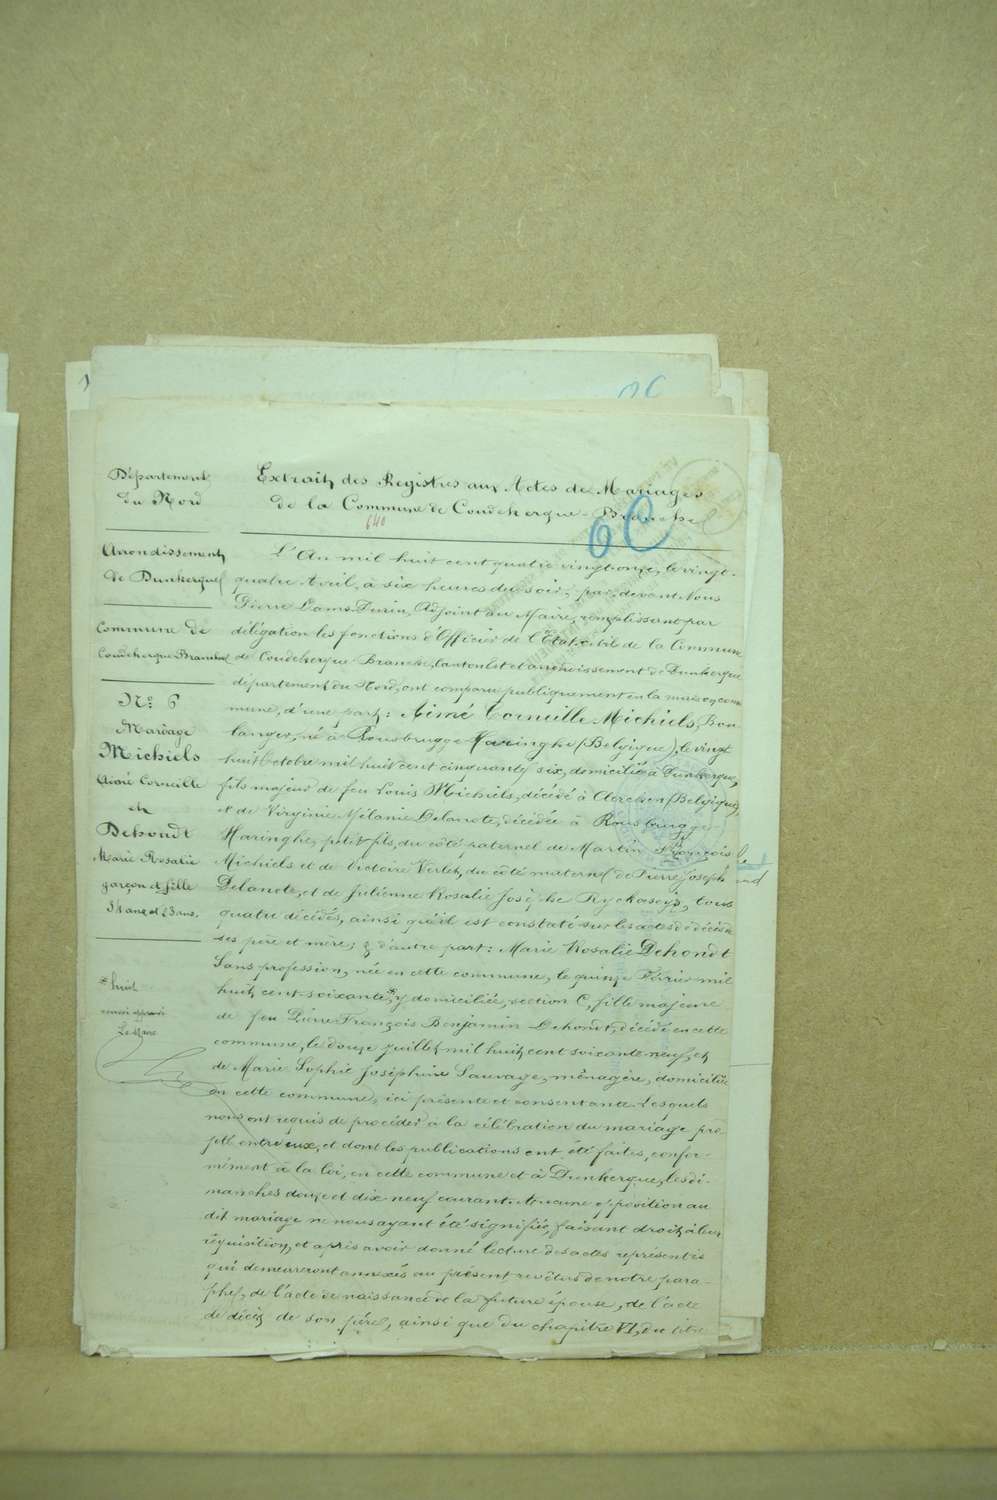 Département
du Nord
Arrondissement
de Dunkerque
Commune de
Coudekerque Branche
No. 6
Mariage
Michiels
Aimé Corneille
et
Dehondt
Marie Rosalie
garçon et fille
34 ans et 23 ans.
* huit
Le Maire
Extrait des Registres aux Actes de Mariages
de la Commune de Coudekerque-Branche
640
6C
L'An mil huit cent quatre vingt onze, le vingt-
quatre Avril, à six heures du soir; par devant Nous
Pierre Adjoint au Maire, remplissant par
délégation les fonctions d'Officier de l'Etat-civil de la Commune
de Coudekerque-Branche, canton Est et arrondissement de Dunkerque
département du Nord, ont comparu publiquement en la maison com-
mune, d'une part: Aimé Corneille Michiels, Bou-
langer, né à Rousbrugge-Haringhe (Belgique), le vingt
huit Octobre mil huit cent cinquante six, domicilié à Dunkerque,
fils majeur de feu Louis Michiels, décédé à Clercken (Belgique),
et de Virginie Mélanie Delanote, décédée à Rousbrugge-
Haringhe, petit fils, du côté paternel de Martin François
Michiels et de Victoire Verlet, du côté maternel de Pierre Joseph
Delanote, et de Julienne Rosalie Josèphe tous
quatre décédés, ainsi qu'il est constaté sur les actes de décès de
ses père et mère; & d'autre part: Marie Rosalie Dehondt
Sans profession, née en cette commune, le quinze Février mil
huit cent soixante*, y domiciliée, section C, fille majeure
de feu Pierre François Benjamin Dehondt, décédé en cette
commune, le douze Juillet mil huit cent soixante neuf, et
de Marie Sophie Joséphine Sauvage, ménagère, domiciliée
en cette commune, ici présente et consentante. Lesquels
nous ont requis de procéder à la célébration du mariage pro-
jeté entre eux, et dont les publications ont été faites, confor-
mément à la loi, en cette commune et à Dunkerque, les di-
manches douze et dix-neuf courant. Aucune opposition au
dit mariage ne nous ayant été signifiée, faisant droit à leur
réquisition, et après avoir donné lecture des actes représentés
qui demeureront annexés au présent revêtus de notre para-
phe, de l'acte de naissance de la future épouse, de l'acte
de décès de son père, ainsi que du chapitre VI, du titre